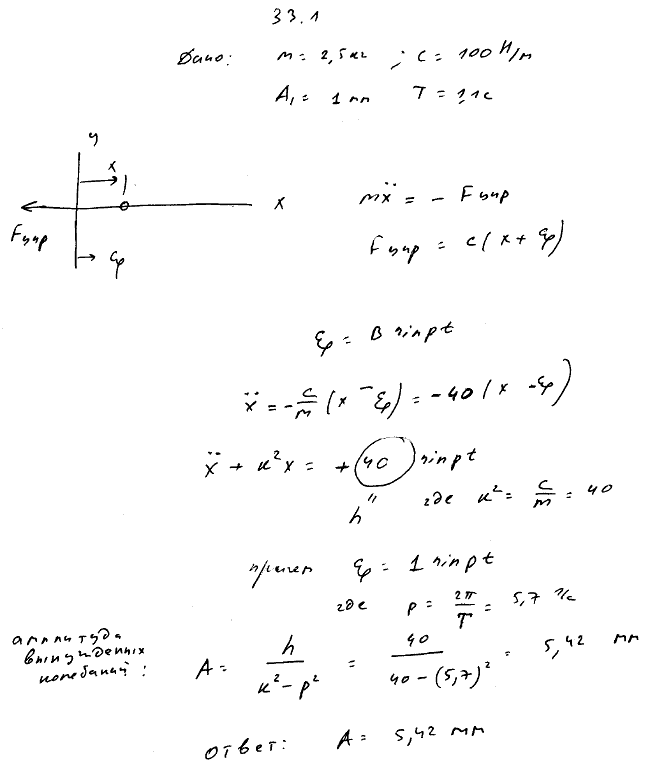 33.1
Дано: m = 2,5 кг ; c = 100 Н/м
A₁ = 1 мм T = 1,1 c
y
x
x
Fупр
ξ
mẍ = - Fупр
Fупр = c(x + ξ)
ξ = B sin pt
ẍ = - c/m (x - ξ) = -40 (x - ξ)
ẍ + к²x = + 40 sin pt
h" где к² = c/m = 40
причем ξ = 1 sin pt
где p = 2π/T = 5,7 1/c
амплитуда
вынужденных
колебаний: A = h/(к² - p²) = 40/(40 - (5,7)²) = 5,42 мм
ответ: A = 5,42 мм